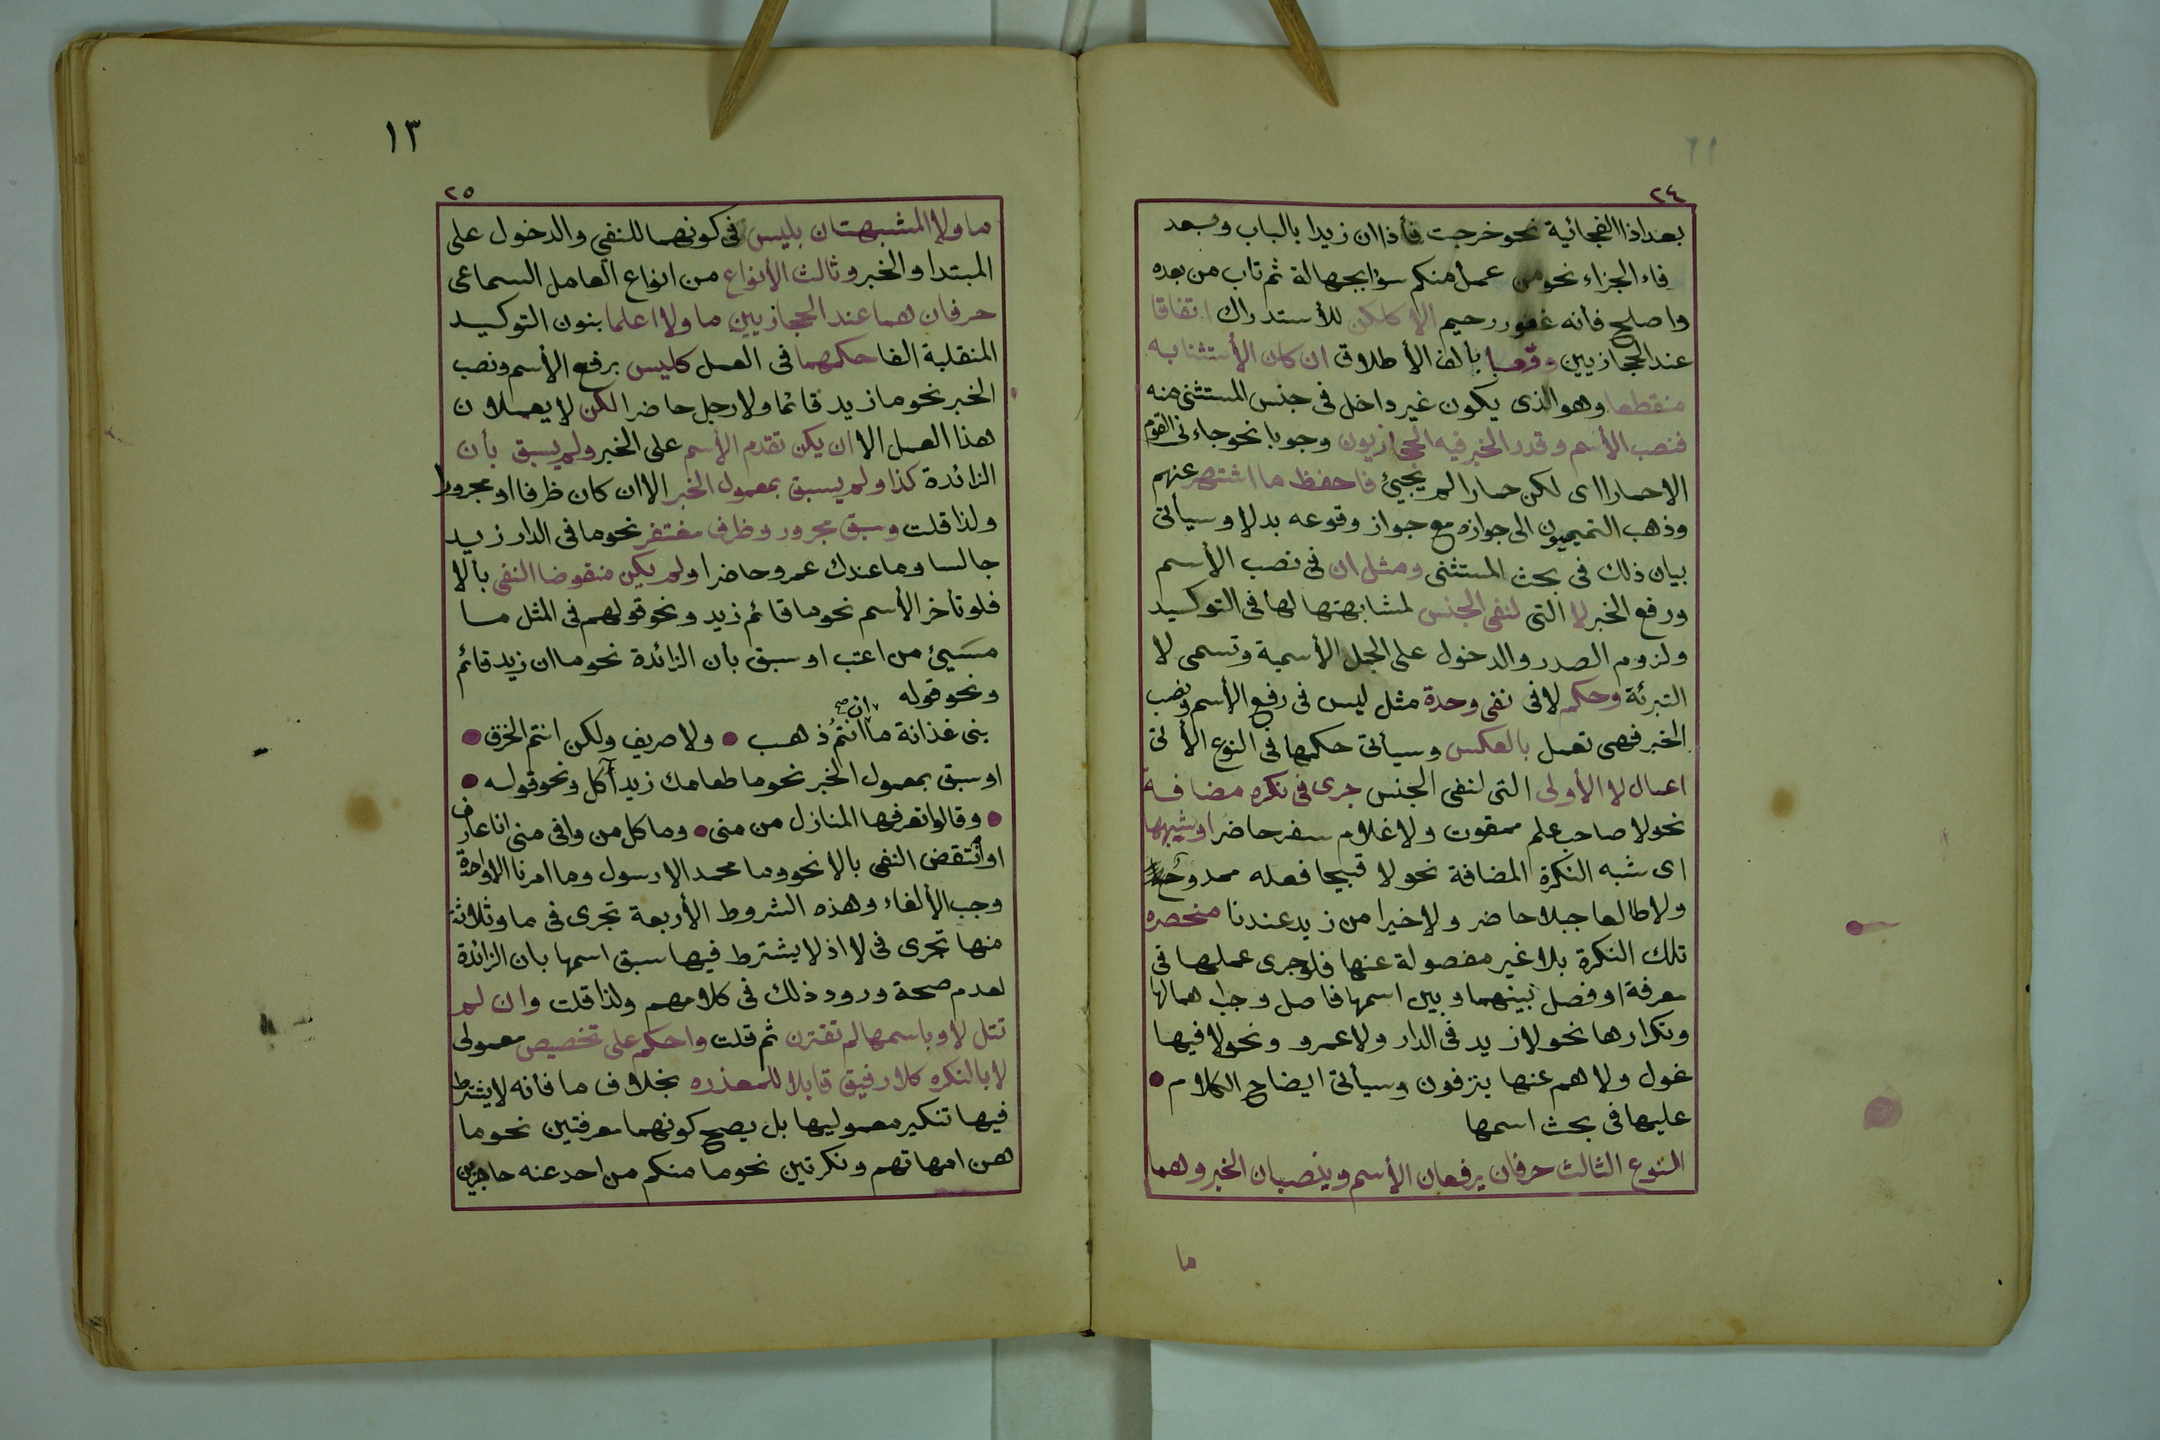 ٢٤
بعد اذا الفجائية نحو خرجت فأذا ان زيدا بالباب وبعد
فاء الجزاء نحو من عمل منكم سؤا بجهالة ثم تاب من بعده
واصلح فأنه غفور رحيم الا كلكن للأستدراك اتفاقا
عند الحجازيين وقربا بألف الأطلاق ان كان الأستثنا به
منقطعا وهو الذى يكون غير داخل فى جنس المستثنى منه
فنصب الأسم وقدر الخبر فيه الحجازيون وجوبا نحو جاءنى القوم
الا حمارا اى لكن حمارا لم يجيئ فاحفظ ما اشتهر عنهم
وذهب التميميون الى جوازه مع جواز وقوعه بدلا وسيأتى
بيان ذلك فى بحث المستثنى ومثل ان فى نصب الأسم
ورفع الخبر لا التى لنفى الجنس لمشابهتها لها فى التوكيد
ولزوم الصدر والدخول على الجمل الأسمية وتسمى لا
التبرئة وحكم لا فى نفى وحدة مثل ليس فى رفع الأسم ونصب
الخبر فهى تعمل بالعكس وسيأتى حكمها فى النوع الأتى
اعمال لا الأولى التى لنفى الجنس جرى فى نكره مضافة
نحو لا صاحب علم ممقوت ولا غلام سفر حاضر او شبهها
اى شبه النكرة المضافة نحو لا قبيحا فعله ممدوح
ولا طالعا جبلا حاضر ولا خيرا من زيد عندنا منحصره
تلك النكرة بلا غير مفصولة عنها فلو جرى عملها فى
معرفة او فصل بينهما وبين اسمها فاصل وجب اهمالها
وتكرارها نحو لا زيد فى الدار ولا عمرو ونحو لا فيها
غول ولا هم عنها ينزفون وسيأتى ايضاح الكلام
عليها فى بحث اسمها
النوع الثالث حرفان يرفعان الأسم وينصبان الخبر وهما
ما
١٣
٢٥
ما ولا المشبهتان بليس فى كونهما للنفي والدخول على
المبتدا والخبر وثالث الأنواع من انواع العامل السماعى
حرفان هما عند الحجازيين ما ولا اعلما بنون التوكيد
المنقلبة الفا حكمهما فى العمل كليس برفع الأسم ونصب
الخبر نحو ما زيد قائما ولا رجل حاضرا لكن لا يعملان
هذا العمل الا ان يكن تقدم الأسم على الخبر ولم يسبق بأن
الزائدة كذا ولم يسبق بمعمول الخبر الا ان كان ظرفا او مجرورا
ولذا قلت وسبق مجرور وظرف مغتفر نحو ما فى الدار زيد
جالسا وما عندك عمرو حاضرا ولم يكن منقوضا النفى بألا
فلو تأخر الأسم نحو ما قائم زيد ونحو قولهم فى المثل ما
مسيئ من اعتب او سبق بأن الزائدة نحو ما ان زيد قائم
ونحو قوله
بنى غدانة ما ان انتم ذهب • ولا صريف ولكن انتم الخزف •
او سبق بمعمول الخبر نحو ما طعامك زيد آكل ونحو قوله •
• وقالوا تعرفها المنازل من منى • وما كل من وافى منى انا عارف
او أنتقض النفى بالا نحو وما محمد الا رسول وما امرنا الا واحدة
وجب الألغاء وهذه الشروط الأربعة تجرى فى ما وثلاثة
منها تجرى فى لا اذ لا يشترط فيها سبق اسمها بان الزائدة
لعدم صحة ورود ذلك فى كلامهم ولذا قلت وان لم
تتل لا وباسمها لم تقترن ثم قلت واحكم على تخصيص معمولى
لا بالنكره كلا رفيق قابلا للمعذره بخلاف ما فأنه لا يشترط
فيها تنكير معموليها بل يصح كونهما معرفتين نحو ما
هن امهاتهم ونكرتين نحو ما منكم من احد عنه حاجزين